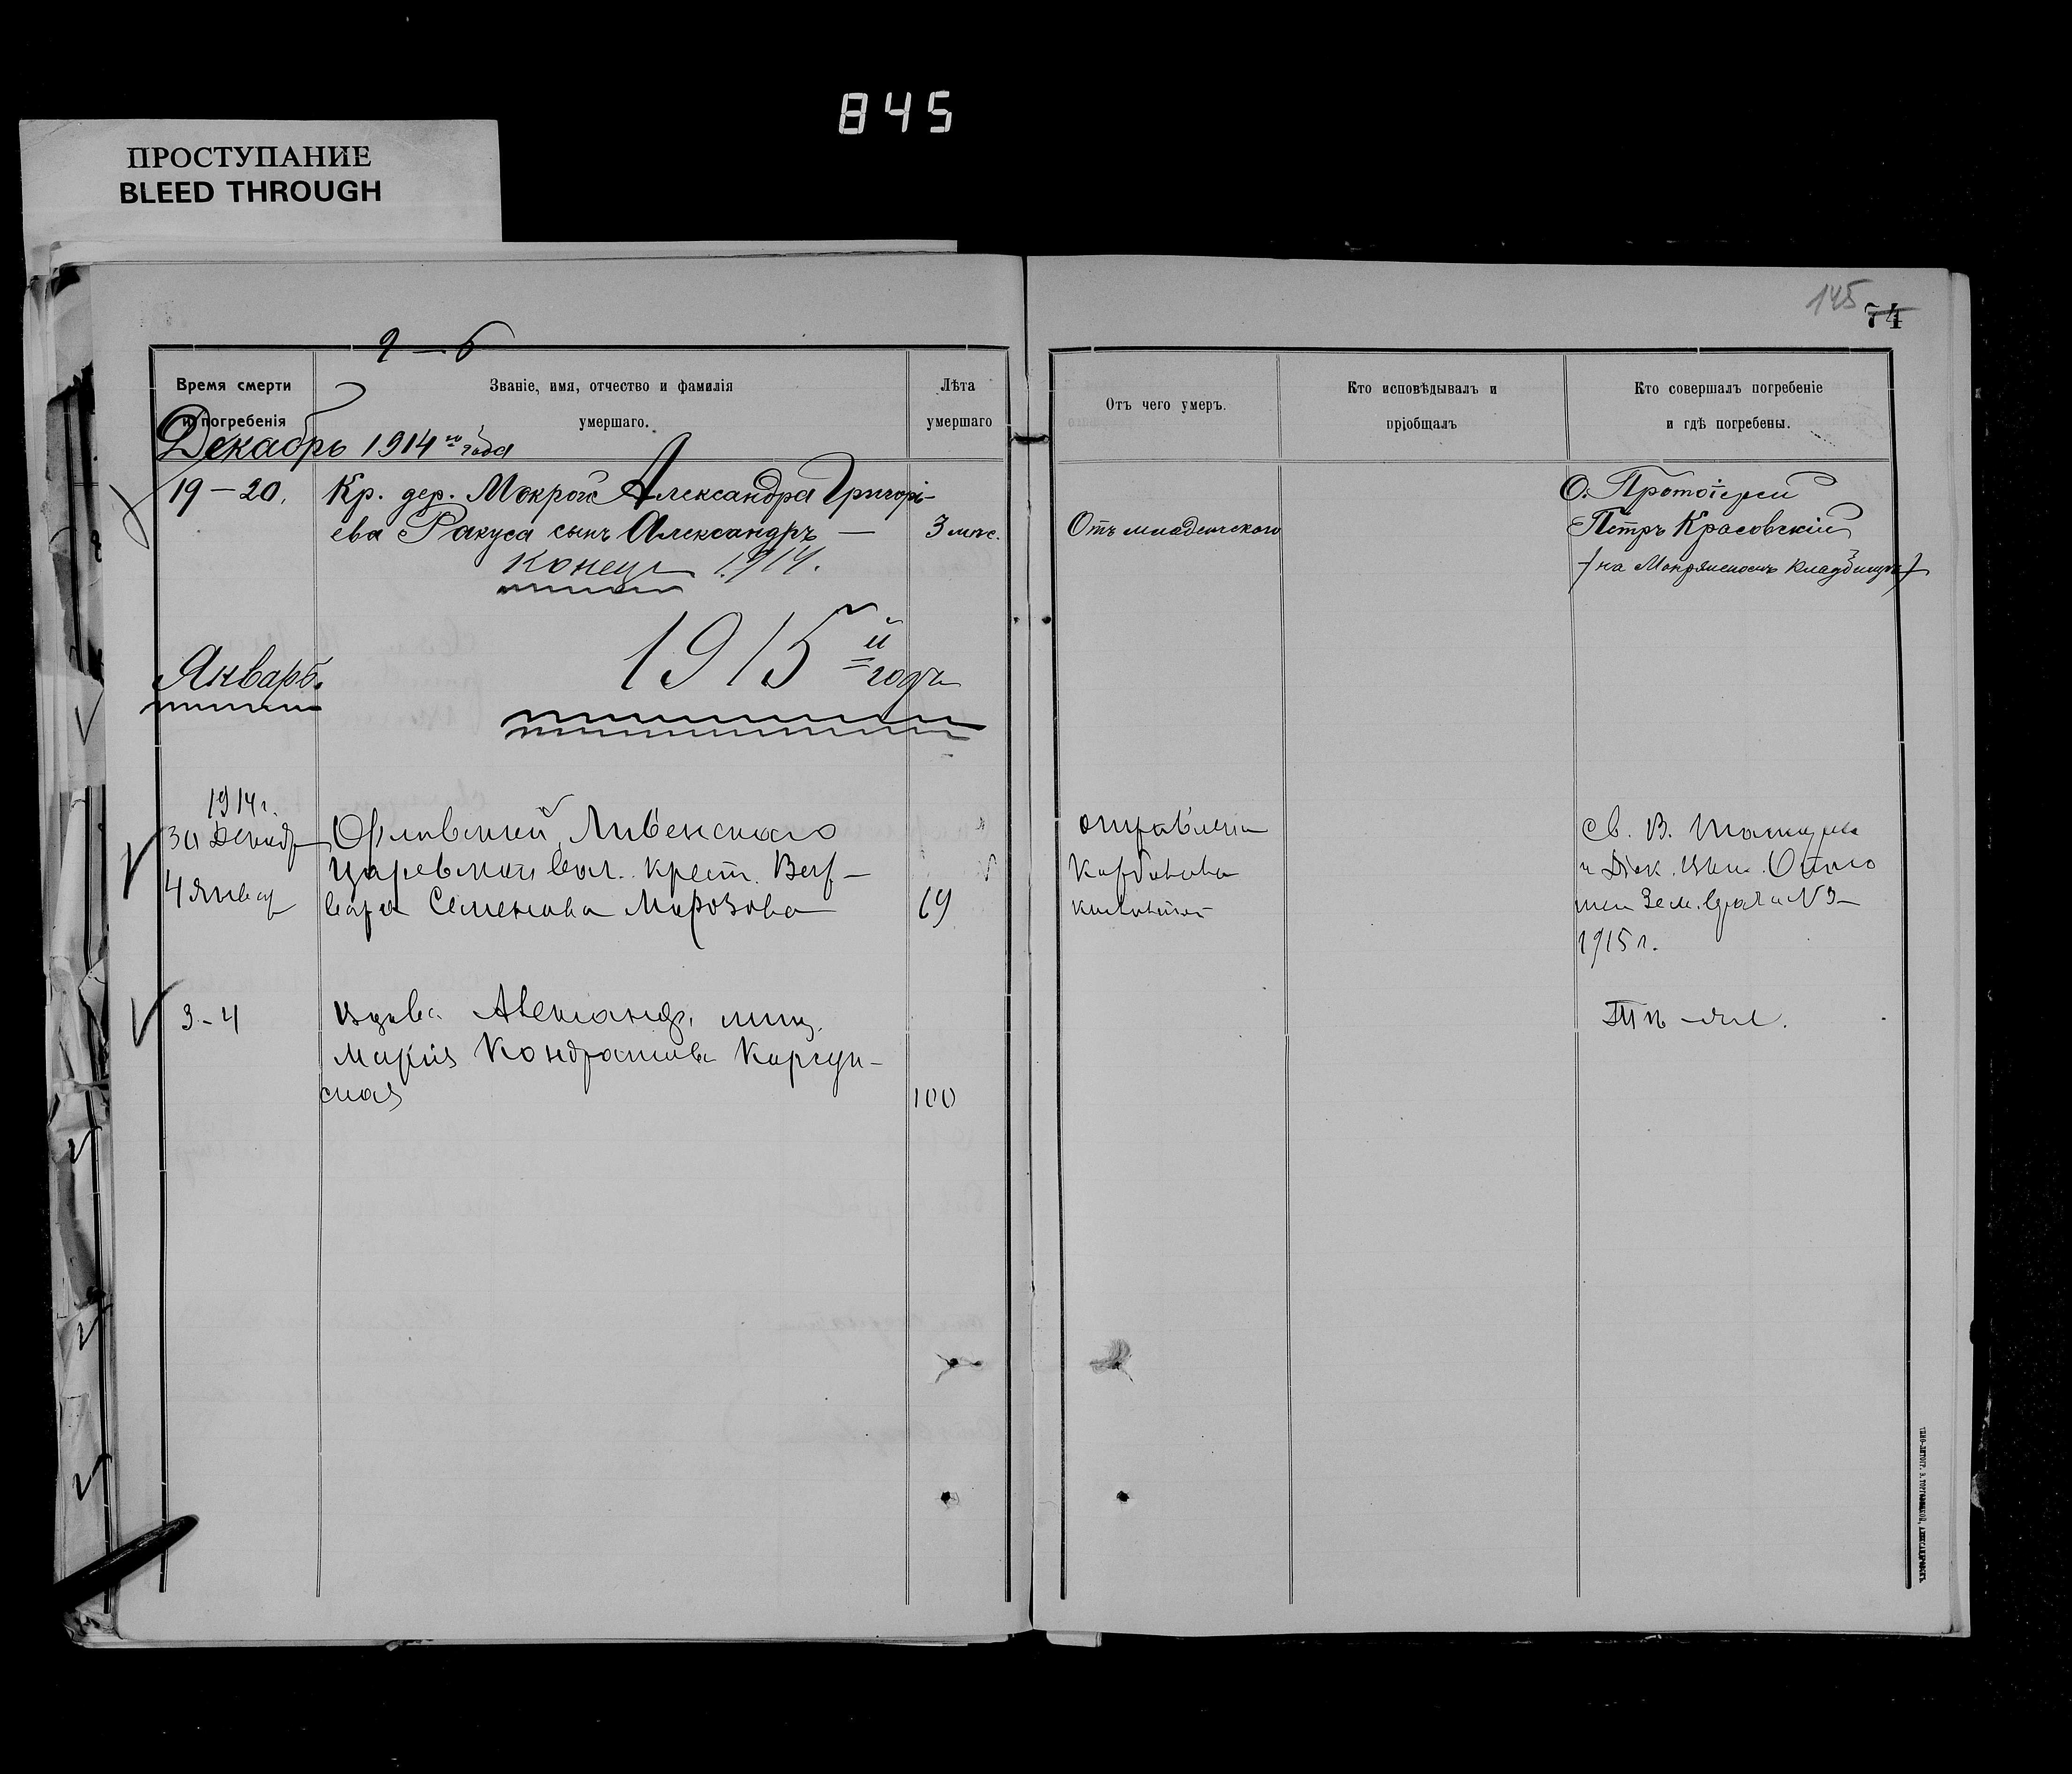 845
ПРОСТУПАНИЕ
BLEED THROUGH
145
74
9 — 6
Время смерти
и погребенія
Званіе, имя, отчество и фамилія
умершаго.
Лѣта
умершаго
Отъ чего умеръ.
Кто исповѣдывалъ и
пріобщалъ
Кто совершалъ погребеніе
и гдѣ погребены.
Декабрь 1914 го года
19 — 20. Кр. дер. Мокрой Александра Григорі-
ева Ракуса сынъ Александръ — 3 мѣс. Отъ младенческого
О. Протоіерей
Петръ Красовскій
на Мокрянскомъ кладбищѣ
Конецъ 1914.
1915 й годъ
Январь.
1914 г.
30 Декабр Орловской, Ливенскаго
вол. крест. Вар-
4 Январ вара Семенова Морозова 69
отравлена
Карболовой
кислотой
Св. В.
и Діак.
Зем. врача № 9
1915 г.
3 - 4 Вдова Александр. мещ.
Марія Кондратова Корсун-
ская 100
Тѣ-же.